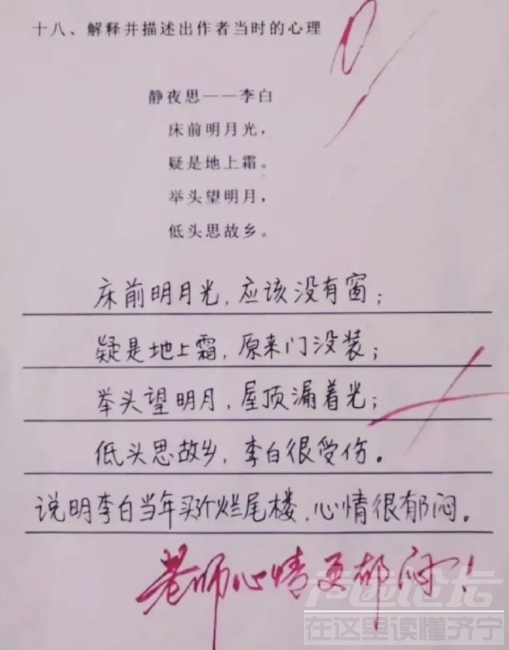 十八、解释并描述出作者当时的心理
0
静夜思——李白
床前明月光，
疑是地上霜。
举头望明月，
低头思故乡。
床前明月光，应该没有窗；
疑是地上霜，原来门没装；
举头望明月，屋顶漏着光；
低头思故乡，李白很受伤。
说明李白当年买个烂尾楼，心情很郁闷。
老师心情更郁闷！
在这里读懂济宁